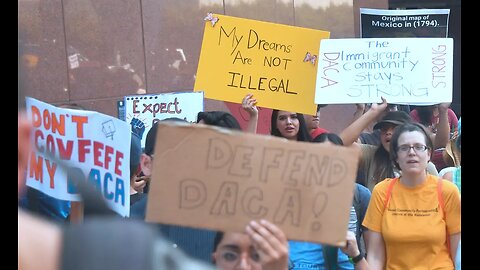 Original map of
Mexico in (1794).
My Dreams
Are Not
ILLEGAL
The
Immigrant
Community
Stays
STRONG
DACA
STRONG
Expect
DON'T
COVFEFE
MY
DACA
DEFEND
DACA!